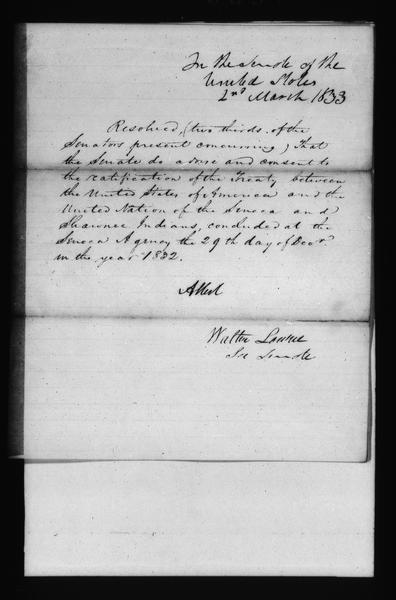 In the Senate of the
United States
2nd March 1833
Resolved, (two thirds of the
Senators present concurring) That
the Senate do advise and consent to
the ratification of the Treaty between
the United States of America and the
United Nation of the Seneca and
Shawnee Indians, concluded at the
Seneca Agency the 29th day of Decr
in the year 1832.
Attest
Walter Lowrie
Sec Senate